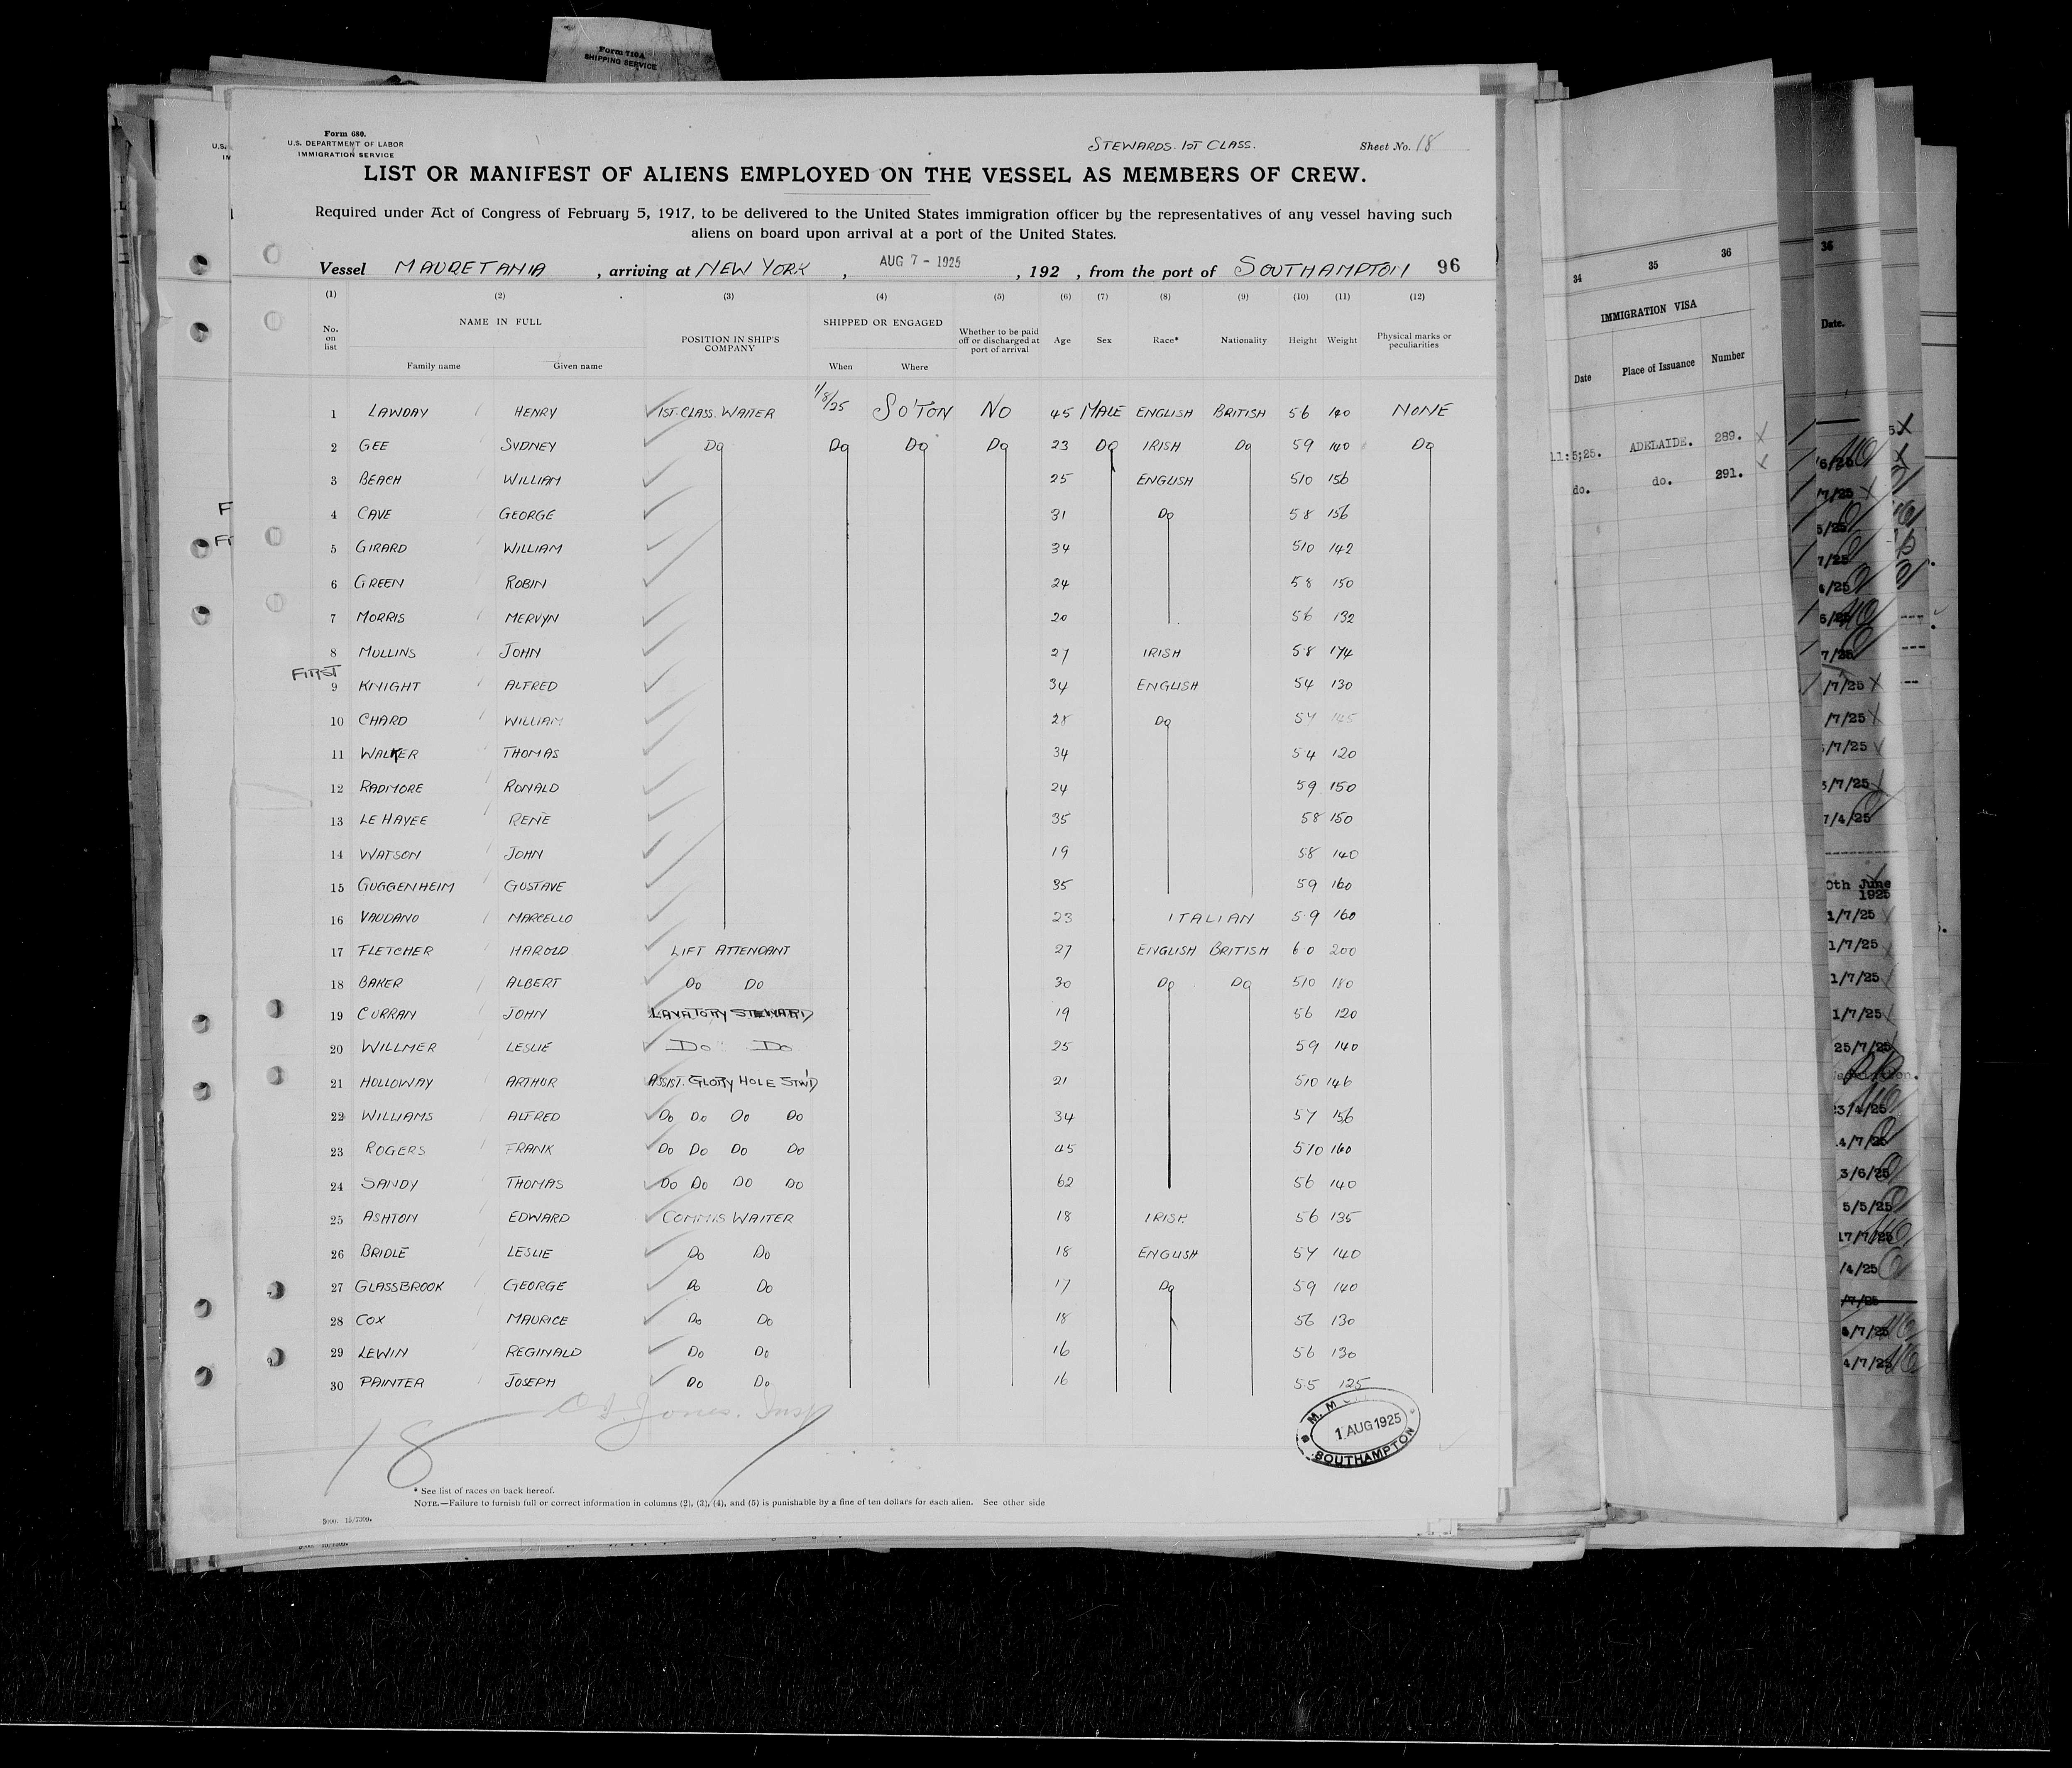 Form 710A
SHIPPING SERVICE
Form 680.
U.S. DEPARTMENT OF LABOR
IMMIGRATION SERVICE
STEWARDS. 1ST CLASS.
Sheet No. 18
LIST OR MANIFEST OF ALIENS EMPLOYED ON THE VESSEL AS MEMBERS OF CREW.
Required under Act of Congress of February 5, 1917, to be delivered to the United States immigration officer by the representatives of any vessel having such
aliens on board upon arrival at a port of the United States.
Vessel MAURETANIA, arriving at NEW YORK, AUG 7 - 1925, 192 , from the port of SOUTHAMPTON 96
(1) (2) (3) (4) (5) (6) (7) (8) (9) (10) (11) (12)
No. on list NAME IN FULL Family name Given name POSITION IN SHIP'S COMPANY SHIPPED OR ENGAGED When Where Whether to be paid off or discharged at port of arrival Age Sex Race* Nationality Height Weight Physical marks or peculiarities
1 LAWDAY HENRY 1ST CLASS. WAITER 1/8/25 SO'TON NO 45 MALE ENGLISH BRITISH 56 140 NONE
2 GEE SYDNEY Do Do Do Do 23 Do IRISH Do 59 140 Do
3 BEACH WILLIAM 25 ENGLISH 510 156
4 CAVE GEORGE 31 Do 58 156
5 GIRARD WILLIAM 34 510 142
6 GREEN ROBIN 24 58 150
7 MORRIS MERVYN 20 56 132
8 MULLINS JOHN 27 IRISH 58 174
FIRST
9 KNIGHT ALFRED 34 ENGLISH 54 130
10 CHARD WILLIAM 28 Do 57 145
11 WALKER THOMAS 34 54 120
12 RADMORE RONALD 24 59 150
13 LE HAYEE RENE 35 58 150
14 WATSON JOHN 19 58 140
15 GUGGENHEIM GUSTAVE 35 59 160
16 VAUDANO MARCELLO 23 ITALIAN 59 160
17 FLETCHER HAROLD LIFT ATTENDANT 27 ENGLISH BRITISH 60 200
18 BAKER ALBERT Do Do 30 Do Do 510 180
19 CURRAN JOHN LAVATORY STEWARD 19 56 120
20 WILLMER LESLIE Do Do 25 59 140
21 HOLLOWAY ARTHUR ASSIST. GLORY HOLE STW'D 21 510 146
22 WILLIAMS ALFRED Do Do Do Do 34 57 156
23 ROGERS FRANK Do Do Do Do 45 510 160
24 SANDY THOMAS Do Do Do Do 62 56 140
25 ASHTON EDWARD COMMIS WAITER 18 IRISH 56 135
26 BRIDLE LESLIE Do Do 18 ENGLISH 57 140
27 GLASSBROOK GEORGE Do Do 17 Do 59 140
28 COX MAURICE Do Do 18 56 130
29 LEWIN REGINALD Do Do 16 56 130
30 PAINTER JOSEPH Do Do 16 55 125
18
1 AUG 1925
SOUTHAMPTON
* See list of races on back hereof.
NOTE.—Failure to furnish full or correct information in columns (2), (3), (4), and (5) is punishable by a fine of ten dollars for each alien. See other side
34 35 36
IMMIGRATION VISA
Date Place of Issuance Number
11:5;25. ADELAIDE. 289.
do. do. 291.
36
Date.